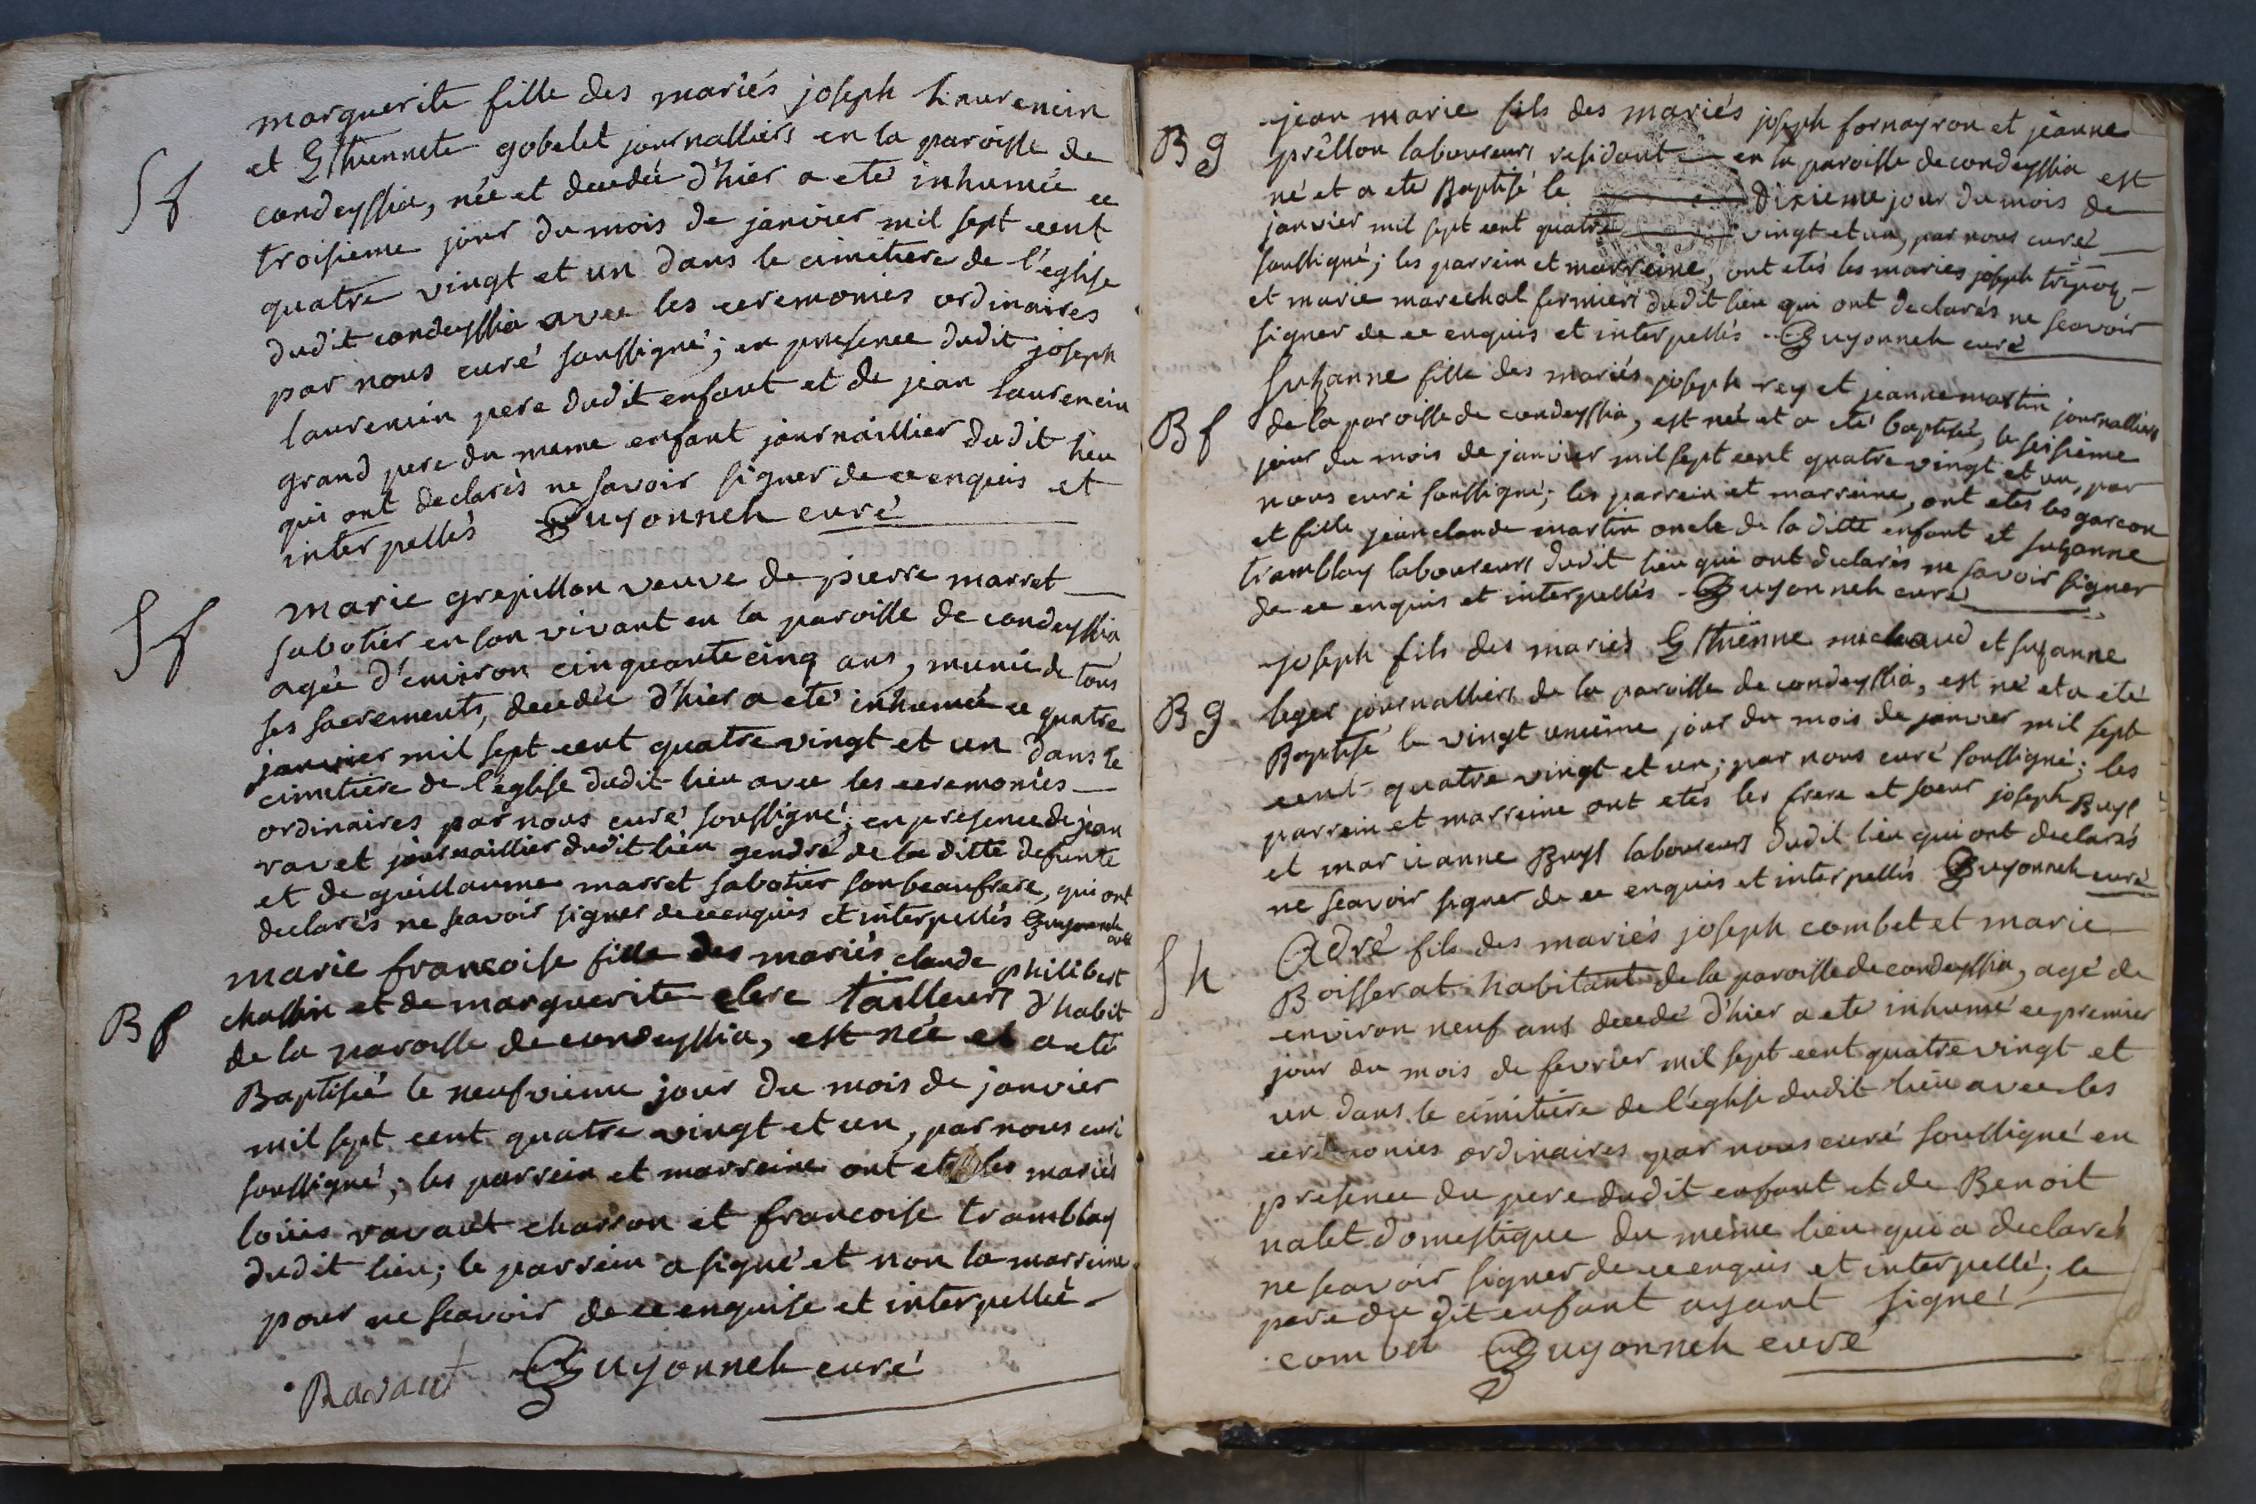 marguerite fille des mariés joseph laurencin
et Esthiennete gobelet journalliers en la paroisse de
Sf
condeyssia, née et decedée d'hier a eté inhumée ce
troisieme jour du mois de janvier mil sept cent
quatre vingt et un dans le cimitiere de l'eglise
dudit condeyssia avec les ceremonies ordinaires
par nous curé soussigné; en presence dudit joseph
laurencin pere dudit enfant et de jean laurencin
grand pere du meme enfant journaillier dudit lieu
qui ont declarés ne savoir signer de ce enquis et
interpellés Buyonneh curé
Sf
marie grepillon veuve de pierre marret
sabotier en son vivant en la paroisse de condeyssia
agée d'environ cinquante cinq ans, munie de tous
ses sacrements, decedée d'hier a eté inhumée ce quatre
janvier mil sept cent quatre vingt et un dans le
cimitiere de l'église dudit lieu avec les ceremonies
ordinaires par nous curé soussigné; en presence de jean
ravet journaillier dudit lieu gendre de la ditte defunte
et de guillaume marret sabotier son beaufrere, qui ont
declarés ne scavoir signer de ce enquis et interpellés Buyonneh
curé
marie francoise fille des mariés claude philibert
Bf
chassin et de marguerite clerc tailleurs d'habit
de la paroisse de condeyssia, est née et a eté
Baptisée le neufvieme jour du mois de janvier
mil sept cent quatre vingt et un, par nous curé
soussigné; les parrein et marreine ont etés les mariés
louis ravaut charron et francoise tramblay
dudit lieu; le parrein a signé et non la marreine
pour ne scavoir de ce enquise et interpellée
Ravaut Buyonneh curé
jean marie fils des mariés joseph fornayron et jeanne
Bg
prêllon laboureurs residant en la paroisse de condeyssia est
né et a eté Baptisé le dixieme jour du mois de
janvier mil sept cent quatre vingt et un, par nous curé
soussigné; les parrein et marreine, ont etés les mariés joseph
et marie marechal fermiers dudit lieu qui ont declarés ne scavoir
signer de ce enquis et interpellés Buyonneh curé
Suzanne fille des mariés joseph rey et jeanne martin journalliers
Bf
de la paroisse de condeyssia, est née et a eté baptisée, le seisieme
jour du mois de janvier mil sept cent quatre vingt et un, par
nous curé soussigné; les parrein et marreine, ont etés les garcon
et fille jean claude martin oncle de la ditte enfant et suzanne
tramblay laboureurs dudit lieu qui ont declarés ne savoir signer
de ce enquis et interpellés Buyonneh curé
joseph fils des mariés Esthienne michaud et suzanne
Bg
leger journalliers de la paroisse de condeyssia, est né et a été
Baptisé le vingt unieme jour du mois de janvier mil sept
cent quatre vingt et un; par nous curé soussigné; les
parrein et marreine ont etés les frere et soeur joseph Buys
et marieanne Buys laboureurs dudit lieu qui ont declarés
ne scavoir signer de ce enquis et interpellés Buyonneh curé
Adré fils des mariés joseph combet et marie
Sh
Boisserat habitant de la paroisse de condeyssia, agé de
environ neuf ans decedé d'hier a eté inhumé ce premier
jour du mois de fevrier mil sept cent quatre vingt et
un dans le cimitiere de l'eglise dudit lieu avec les
ceremonies ordinaires par nous curé soussigné en
presence du pere dudit enfant et de Benoit
nalet domestique du même lieu qui a declarés
ne scavoir signer de ce enquis et interpellé; le
pere du dit enfant ayant signé
combet Buyonneh curé